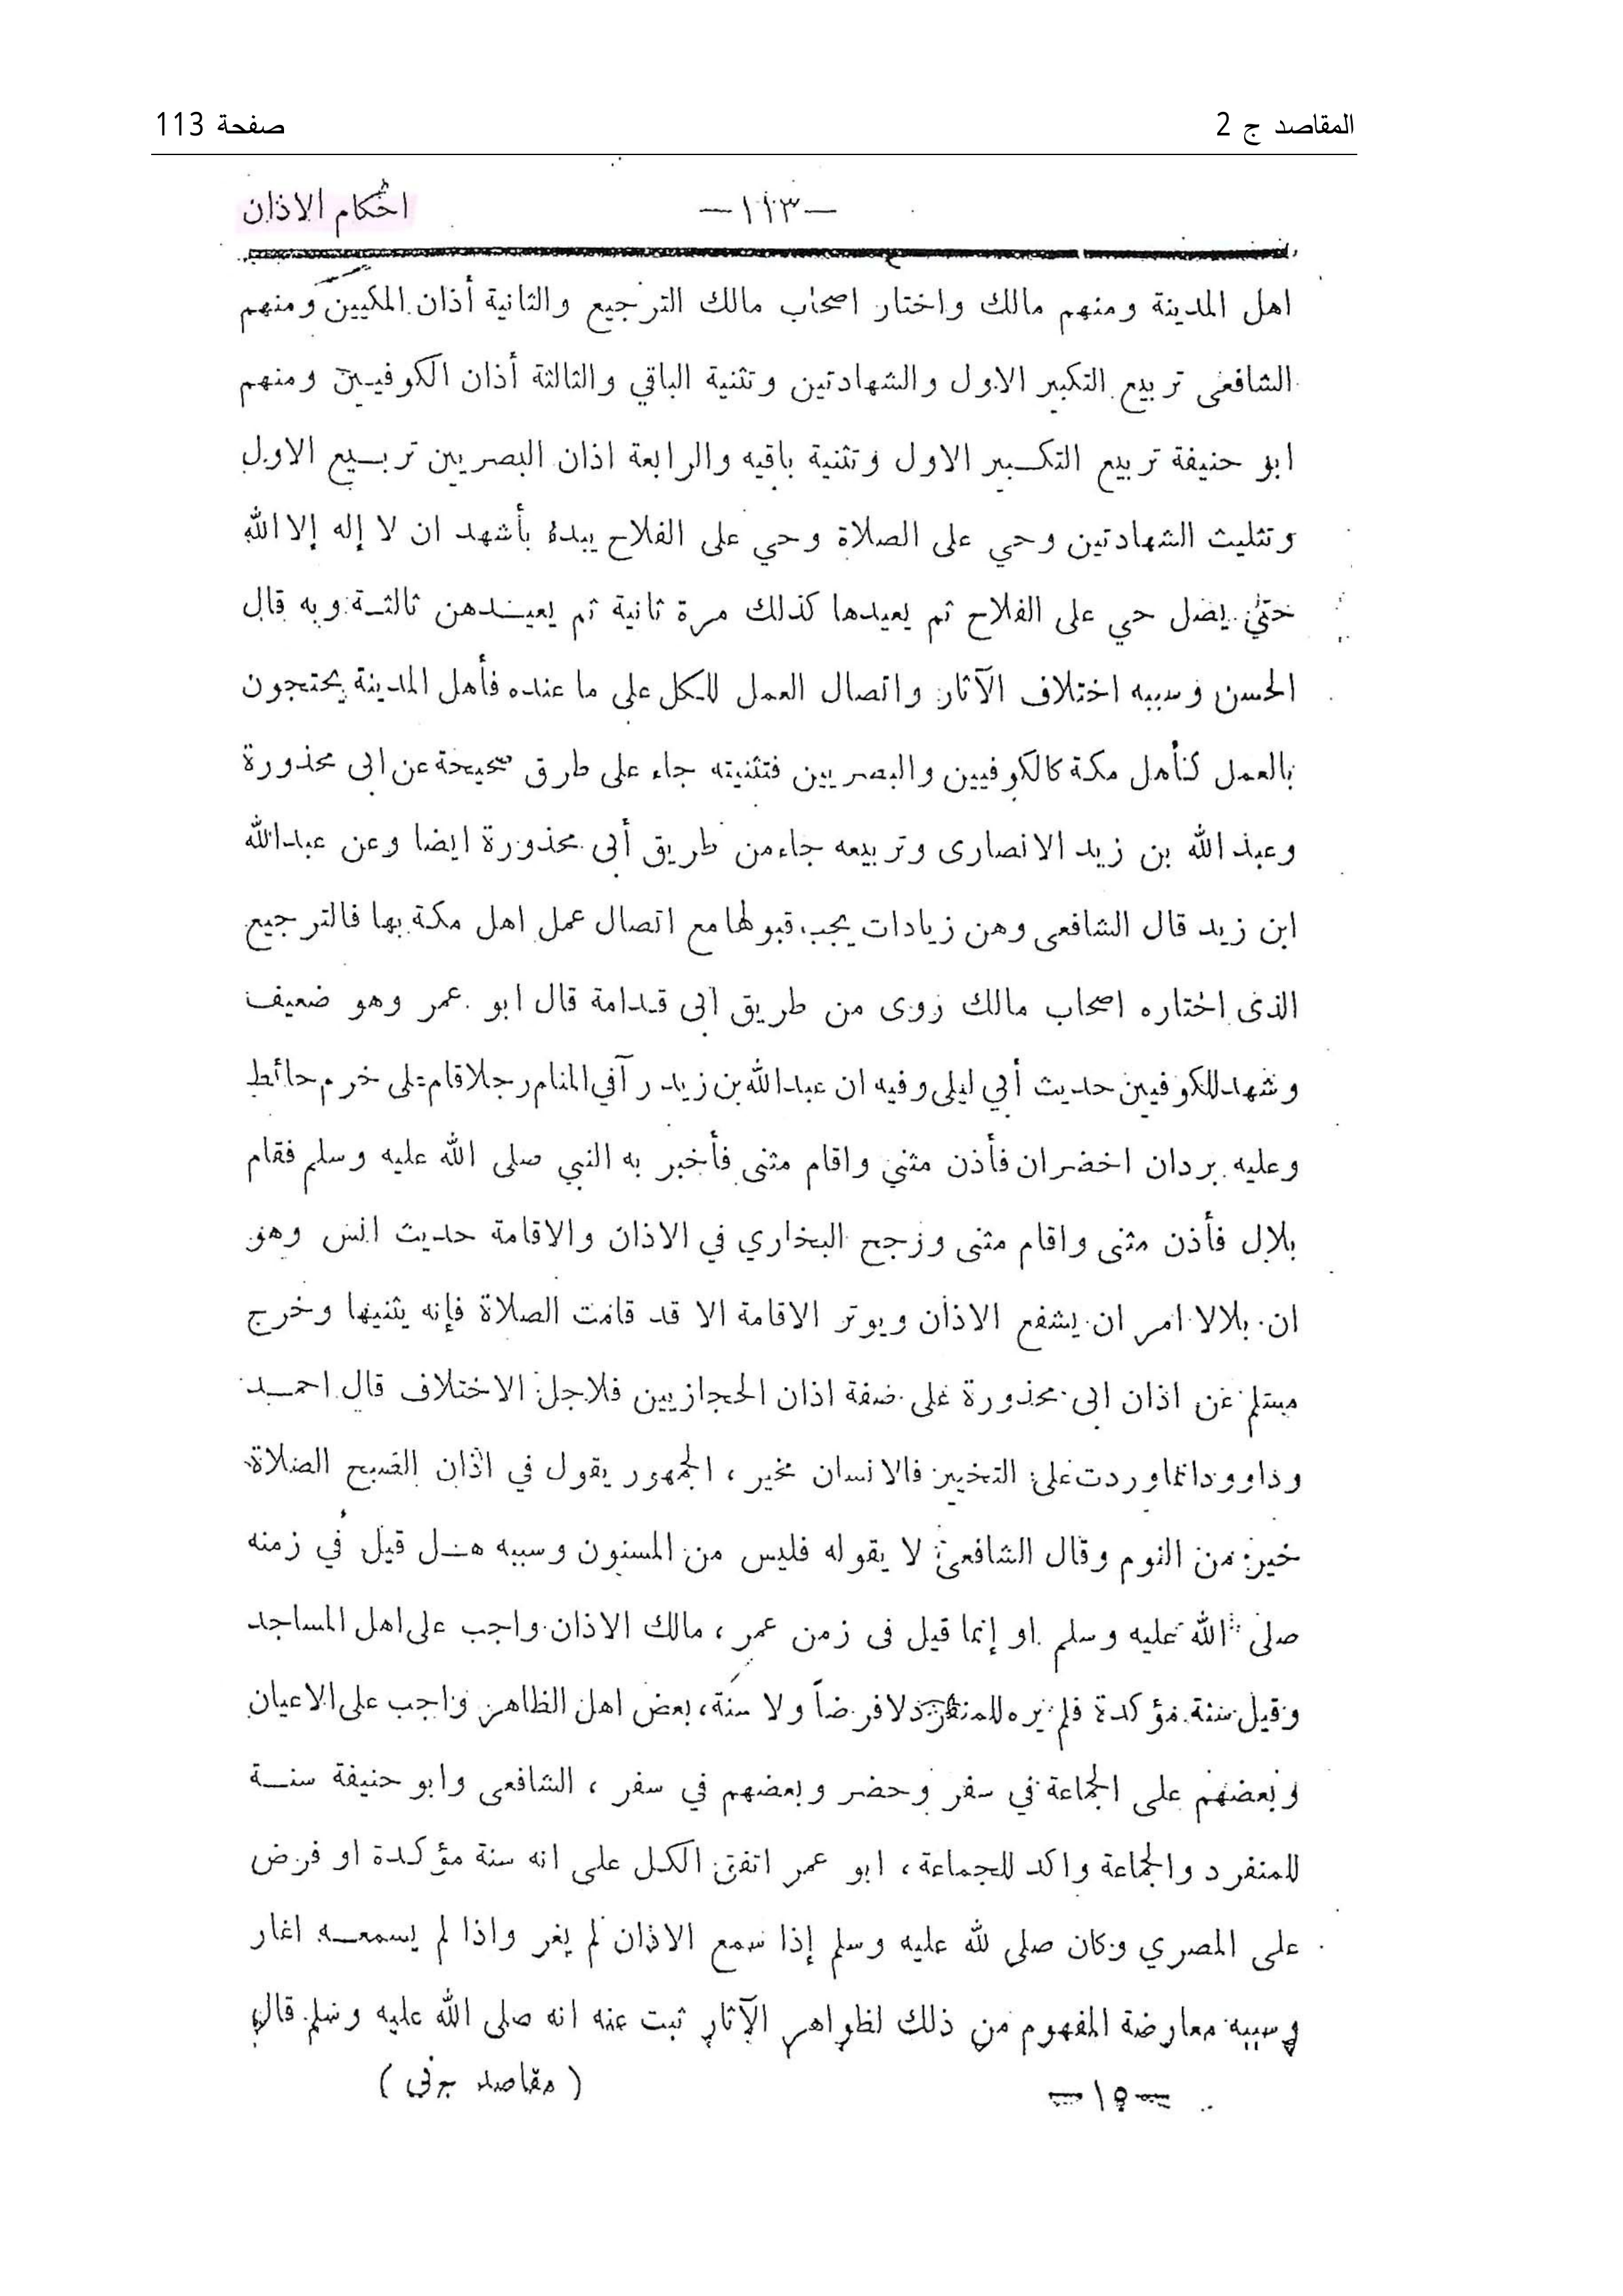 المقاصد ج 2
صفحة 113
—١١٣—
احكام الاذان
اهل المدينة ومنهم مالك واختار اصحاب مالك الترجيع والثانية أذان المكيين ومنهم
الشافعى تربيع التكبير الاول والشهادتين وتثنية الباقي والثالثة أذان الكوفيين ومنهم
ابو حنيفة تربيع التكبير الاول وتثنية باقيه والرابعة اذان البصريين تربيع الاول
وتثليث الشهادتين وحي على الصلاة وحي على الفلاح يبدء بأشهد ان لا إله إلا الله
حتى يصل حي على الفلاح ثم يعيدها كذلك مرة ثانية ثم يعيدهن ثالثة وبه قال
الحسن وسببه اختلاف الآثار واتصال العمل للكل على ما عنده فأهل المدينة يحتجون
بالعمل كأهل مكة كالكوفيين والبصريين فتثنيته جاء على طرق صحيحة عن ابى محذورة
وعبد الله بن زيد الانصارى وتربيعه جاء من طريق أبى محذورة ايضا وعن عبدالله
ابن زيد قال الشافعى وهن زيادات يجب قبولها مع اتصال عمل اهل مكة بها فالترجيع
الذى اختاره اصحاب مالك روى من طريق ابى قدامة قال ابو عمر وهو ضعيف
وشهد للكوفيين حديث أبي ليلى وفيه ان عبدالله بن زيد رآ في المنام رجلا قام على خرم حائط
وعليه بردان اخضران فأذن مثني واقام مثنى فأخبر به النبي صلى الله عليه وسلم فقام
بلال فأذن مثنى واقام مثنى ورجح البخاري في الاذان والاقامة حديث انس وهو
ان بلالا امر ان يشفع الاذان ويوتر الاقامة الا قد قامت الصلاة فإنه يثنيها وخرج
مسلم عن اذان ابى محذورة على صفة اذان الحجازيين فلاجل الاختلاف قال احمد
وداوود انما وردت على التخيير فالانسان مخير ، الجمهور يقول في اذان الصبح الصلاة
خير من النوم وقال الشافعى لا يقوله فليس من المسنون وسببه هل قيل في زمنه
صلى الله عليه وسلم او إنما قيل فى زمن عمر ، مالك الاذان واجب على اهل المساجد
وقيل سنة مؤكدة فلم يره للمنفرد لا فرضاً ولا سنة ، بعض اهل الظاهر واجب على الاعيان
وبعضهم على الجماعة في سفر وحضر وبعضهم في سفر ، الشافعى وابو حنيفة سنة
للمنفرد والجماعة واكد للجماعة ، ابو عمر اتفق الكل على انه سنة مؤكدة او فرض
على المصري وكان صلى لله عليه وسلم إذا سمع الاذان لم يغر واذا لم يسمعه اغار
وسببه معارضة المفهوم من ذلك لظواهر الآثار ثبت عنه انه صلى الله عليه وسلم قال
— ١٥ —
( مقاصد )